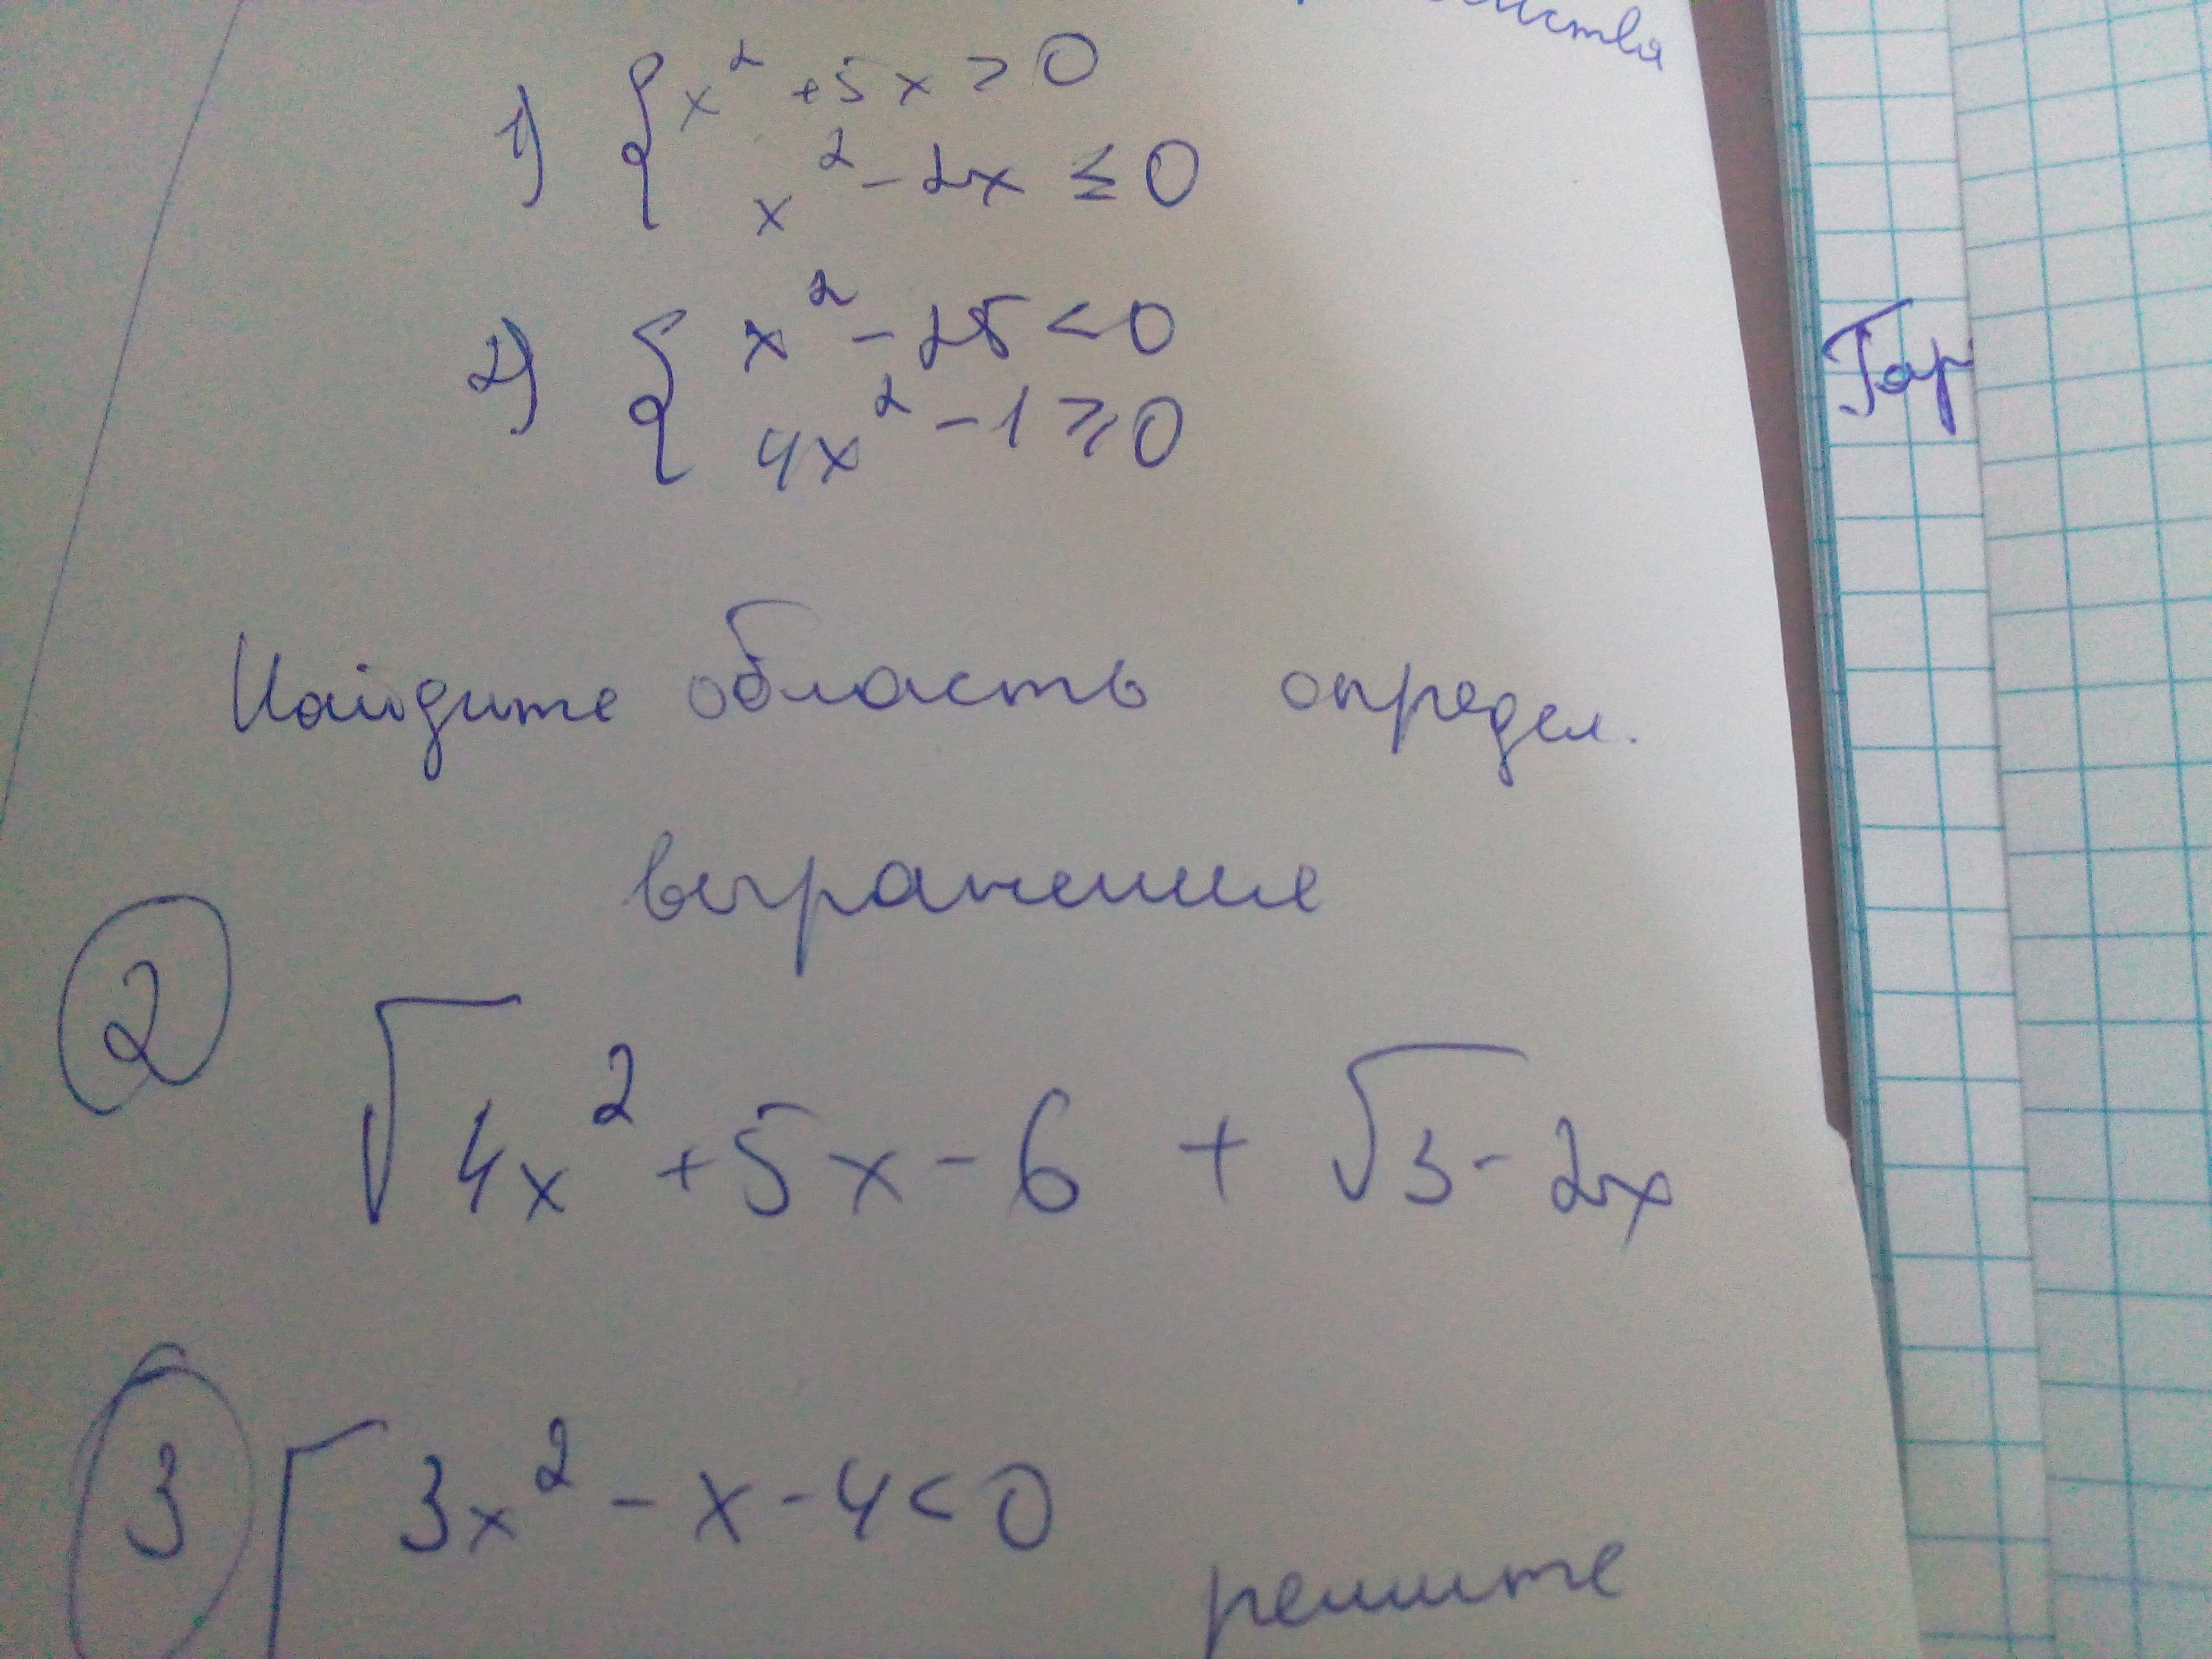 1) { x² + 5x > 0
x² - 2x ≤ 0
2) { x² - 25 < 0
4x² - 1 ≥ 0
Найдите область определ.
выражения
2 √4x² + 5x - 6 + √3 - 2x
3 [ 3x² - x - 4 < 0
решите
Гар